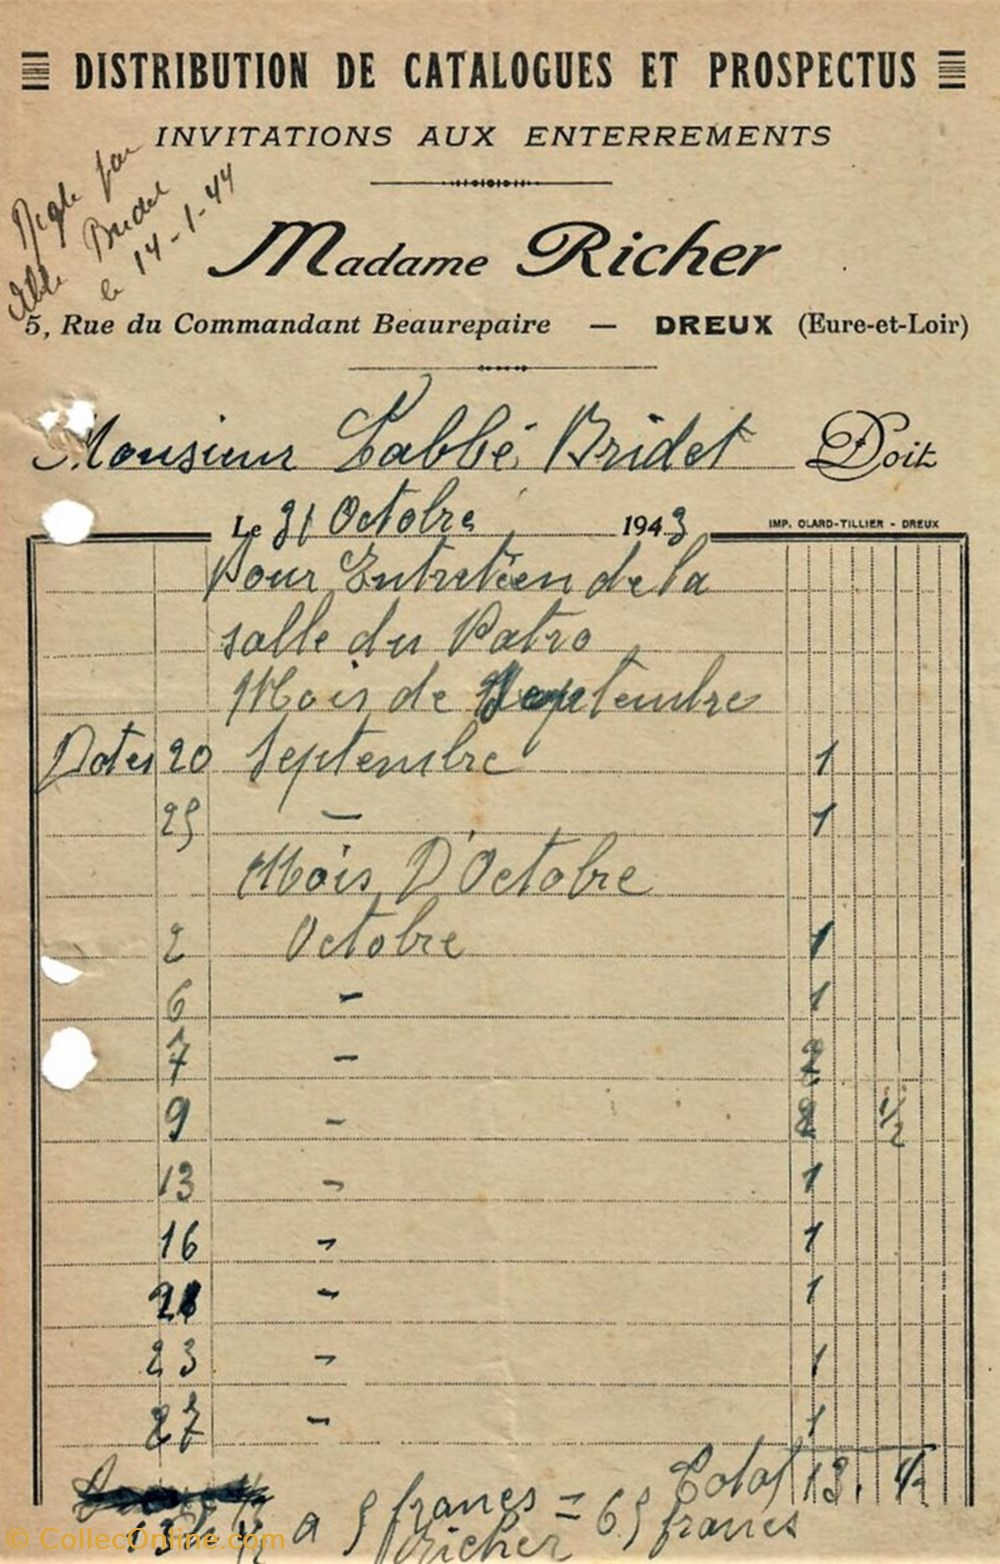 DISTRIBUTION DE CATALOGUES ET PROSPECTUS
INVITATIONS AUX ENTERREMENTS
Réglé par
Abbé Bridet
le 14-1-44
Madame Richer
5, Rue du Commandant Beaurepaire — DREUX (Eure-et-Loir)
Monsieur Labbé Bridet Doit
Le 31 Octobre 1943
IMP. OLARD-TILLIER - DREUX
Pour Entretien de la
salle du Patro
Mois de Septembre
Dates 20 Septembre 1
25 — 1
Mois D'Octobre
2 Octobre 1
6 - 1
7 - 2
9 - 2 1/2
13 - 1
16 - 1
21 - 1
23 - 1
27 - 1
Total 13. 1/2
13 1/2 a 5 francs = 65 francs
Richer
© CollecOnline.com